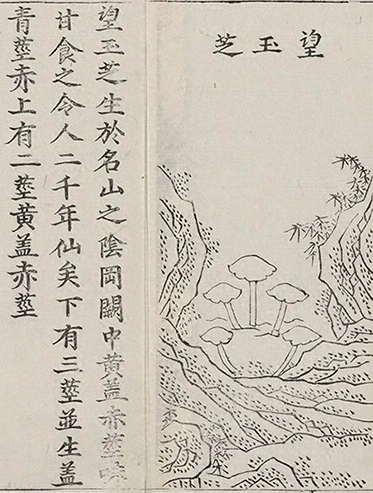 望玉芝
望玉芝生於名山之陰岡闢中黄盖赤莖味
甘食之令人二千年仙矣下有三莖並生盖
青莖赤上有二莖黄盖赤莖